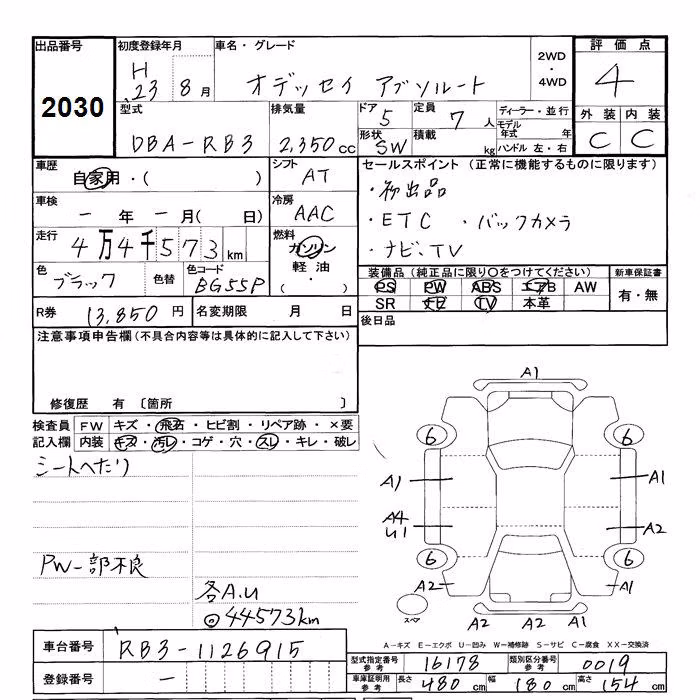 出品番号 初度登録年月 車名・グレード 2WD・4WD 評価点
2030 H 23 8月 オデッセイ アブソルート 4
型式 排気量 ドア 定員 ディーラー・並行 外装 内装
DBA-RB3 2,350cc 5 7人 モデル年式 年 C C
形状 SW 積載 kg ハンドル 左・右
車歴 シフト セールスポイント (正常に機能するものに限ります)
自家用・( ) AT ・初出品
車検 冷房 ・ETC ・バックカメラ
一年 一月( 日) AAC ・ナビ、TV
走行 燃料
4万4千573km ガソリン
軽油
( ・ )
色 色替 色コード 装備品 (純正品に限り○をつけてください) 新車保証書
ブラック BG55P PS PW ABS エアB AW 有・無
SR ナビ TV 本革
R券 13,850円 名変期限 月 日 後日品
注意事項申告欄(不具合内容等は具体的に記入して下さい)
修復歴 有 〔箇所 〕
検査員 FW キズ・飛石・ヒビ割・リペア跡・×要
記入欄 内装 キズ・汚レ・コゲ・穴・スレ・キレ・破レ
シートへたり
PW一部不良
各A.U
◎44573km
A1
6 6
A1 A1
A4 A2
U1
6 6
A2 A1
スペア A2 A2 A1
A-キズ E-エクボ U-凹み W-補修跡 S-サビ C-腐食 XX-交換済
車台番号 RB3-1126915
型式指定番号 参考 16178 類別区分番号 参考 0019
登録番号 一
車庫証明用 参考 長さ 480cm 幅 180cm 高さ 154cm